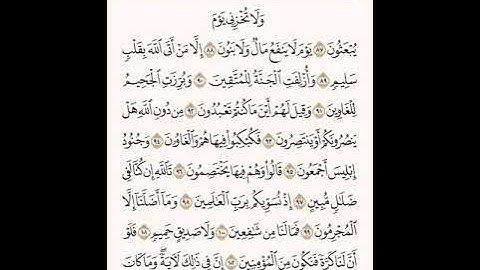 وَلَا تُخْزِنِي يَوْمَ
يُبْعَثُونَ ٨٧ يَوْمَ لَا يَنفَعُ مَالٌ وَلَا بَنُونَ ٨٨ إِلَّا مَنْ أَتَى اللَّهَ بِقَلْبٍ
سَلِيمٍ ٨٩ وَأُزْلِفَتِ الْجَنَّةُ لِلْمُتَّقِينَ ٩٠ وَبُرِّزَتِ الْجَحِيمُ
لِلْغَاوِينَ ٩١ وَقِيلَ لَهُمْ أَيْنَ مَا كُنتُمْ تَعْبُدُونَ ٩٢ مِن دُونِ اللَّهِ هَلْ
يَنصُرُونَكُمْ أَوْ يَنتَصِرُونَ ٩٣ فَكُبْكِبُوا فِيهَا هُمْ وَالْغَاوُونَ ٩٤ وَجُنُودُ
إِبْلِيسَ أَجْمَعُونَ ٩٥ قَالُوا وَهُمْ فِيهَا يَخْتَصِمُونَ ٩٦ تَاللَّهِ إِن كُنَّا لَفِي
ضَلَالٍ مُّبِينٍ ٩٧ إِذْ نُسَوِّيكُم بِرَبِّ الْعَالَمِينَ ٩٨ وَمَا أَضَلَّنَا إِلَّا
الْمُجْرِمُونَ ٩٩ فَمَا لَنَا مِن شَافِعِينَ ١٠٠ وَلَا صَدِيقٍ حَمِيمٍ ١٠١ فَلَوْ
أَنَّ لَنَا كَرَّةً فَنَكُونَ مِنَ الْمُؤْمِنِينَ ١٠٢ إِنَّ فِي ذَٰلِكَ لَآيَةً ۖ وَمَا كَانَ